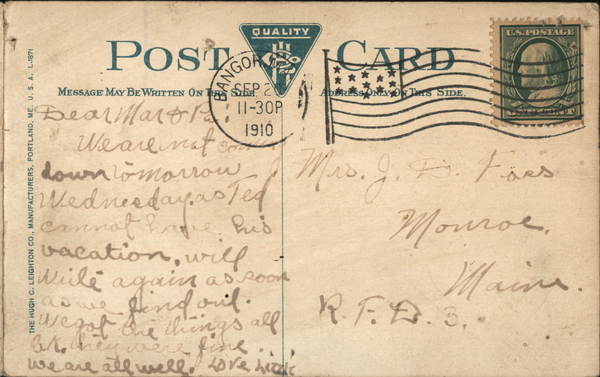 QUALITY
POST CARD
MESSAGE MAY BE WRITTEN ON THIS SIDE.
ADDRESS ONLY ON THIS SIDE.
U.S. POSTAGE
BANGOR
SEP 2
11-30P
1910
THE HUGH C. LEIGHTON CO., MANUFACTURERS, PORTLAND, ME. U. S. A. L-1871
Dear Mar & Pa:
We are not
down tomorrow
Wednesday as Ted
cannot have his
vacation, will
write again as soon
as we find out.
We got the things all
O.K. they were fine
We are all well. Love
Mrs. J. D.
Monroe,
Maine.
R. F. D. 3.